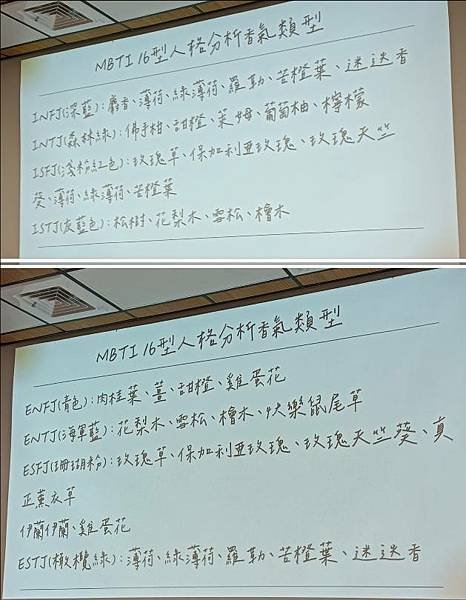 MBTI 16型人格分析香氣類型
INFJ(深藍):麝香、薄荷、綠薄荷、羅勒、苦橙葉、迷迭香
INTJ(森林綠):佛手柑、甜橙、萊姆、葡萄柚、檸檬
ISFJ(淺粉紅色):玫瑰草、保加利亞玫瑰、玫瑰天竺
葵、薄荷、綠薄荷、苦橙葉
ISTJ(灰藍色):松樹、花梨木、雪松、檜木
MBTI 16型人格分析香氣類型
ENFJ(青色):肉桂葉、薑、甜橙、雞蛋花
ENTJ(海軍藍):花梨木、雪松、檜木、快樂鼠尾草
ESFJ(珊瑚粉):玫瑰草、保加利亞玫瑰、玫瑰天竺葵、真
正薰衣草
伊蘭伊蘭、雞蛋花
ESTJ(橄欖綠):薄荷、綠薄荷、羅勒、苦橙葉、迷迭香